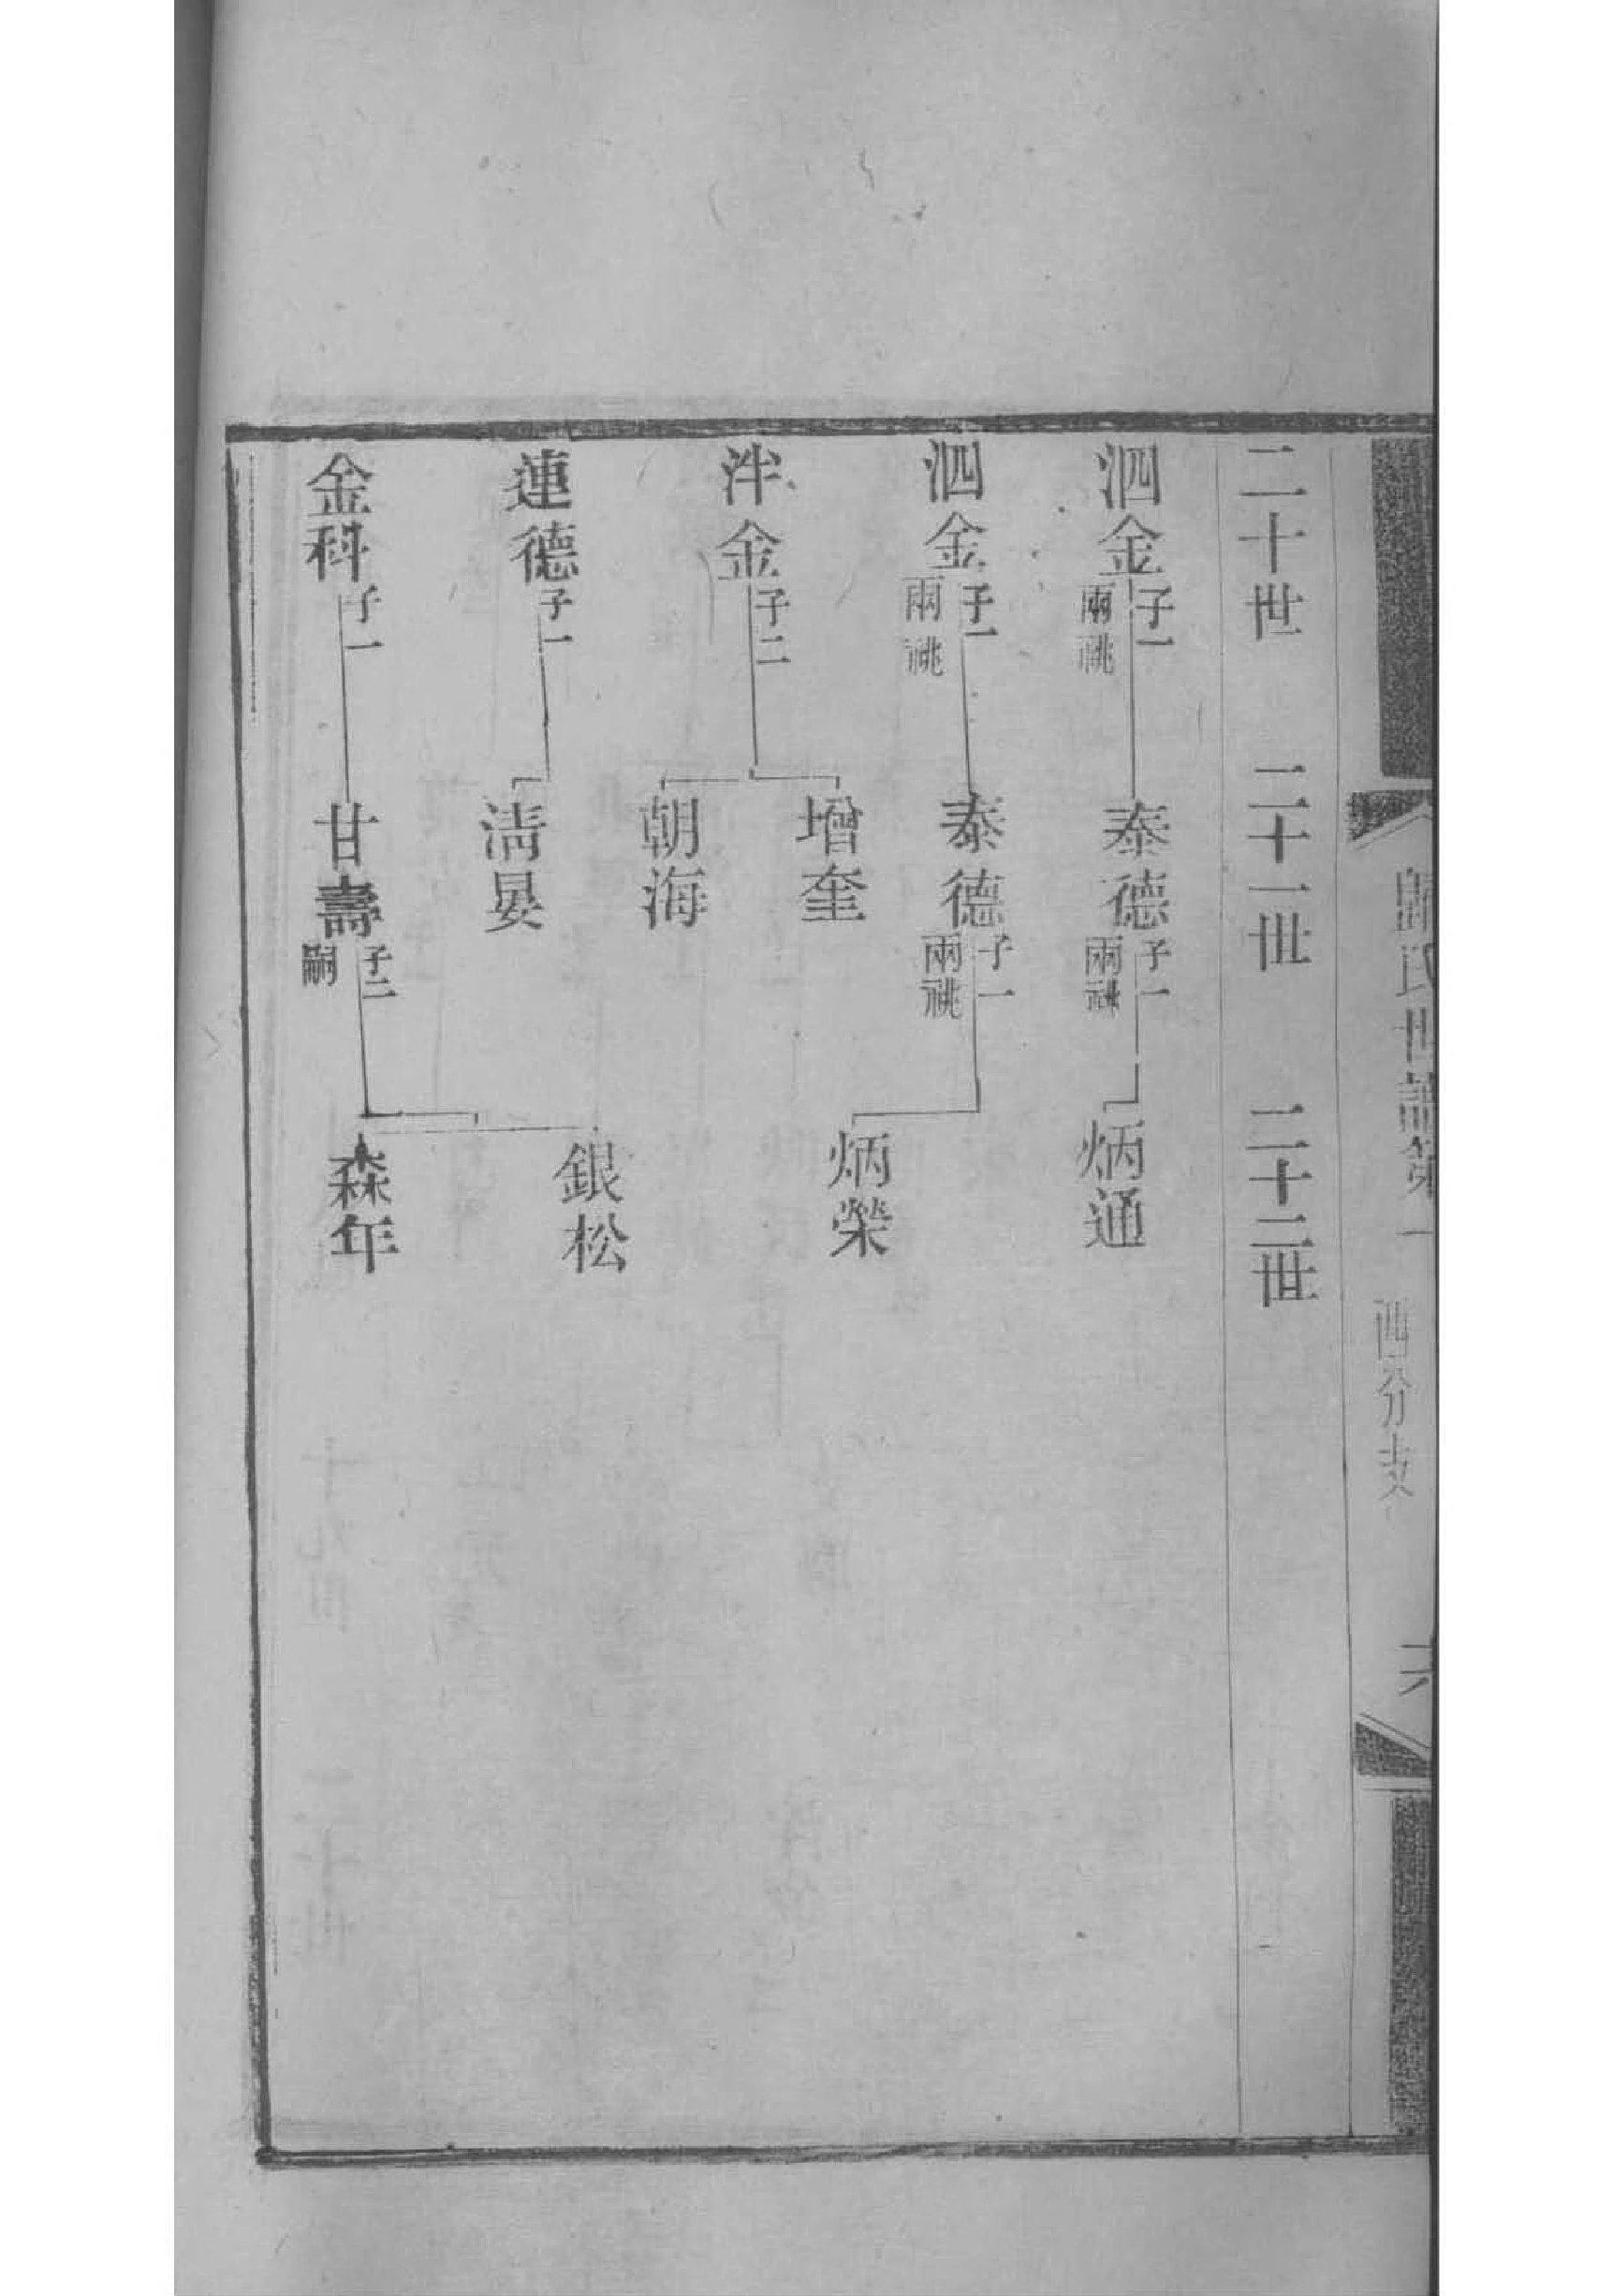 氏世譜
一
四分支
六
二十世
二十一世
二十二世
泗金 子一 兩祧
泰德 子一 兩祧
炳通
泗金 子一 兩祧
泰德 子一 兩祧
炳榮
泮金 子二
增奎
朝海
蓮德 子一
清晏
金科 子一
甘壽 子二 嗣
銀松
森年